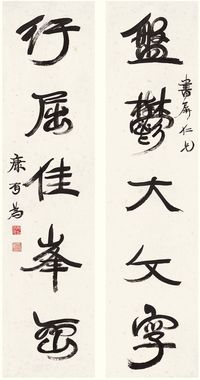 盤鬱大文字
書屏仁兄
行屈佳峯
康有為